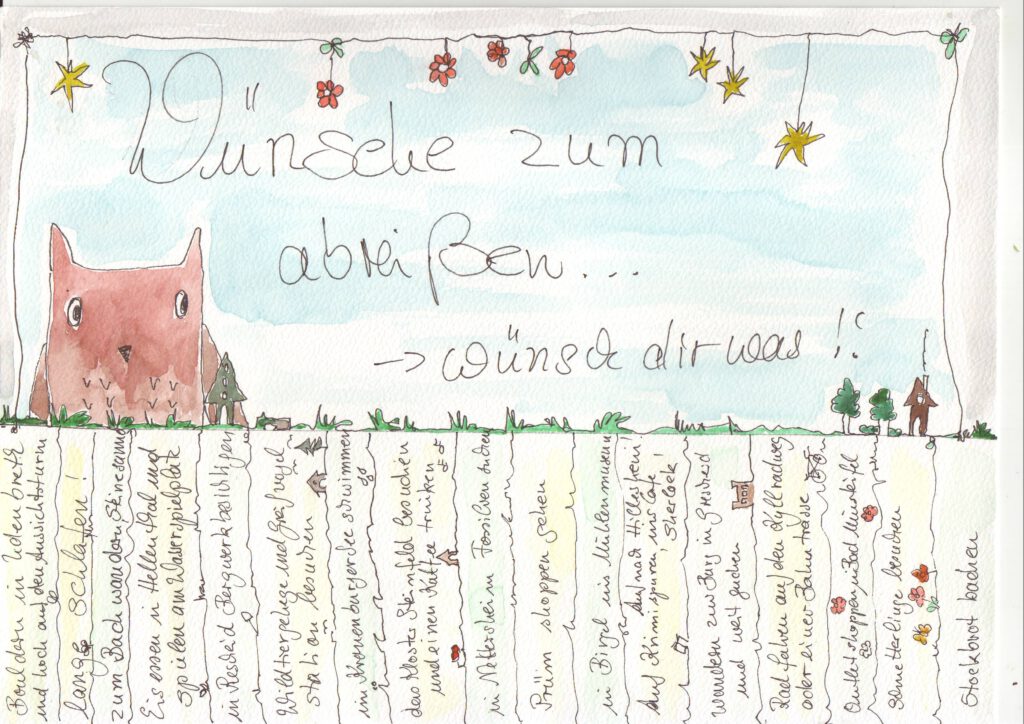 Wünsche zum
abreißen...
→ wünsch dir was!
Bouldern in Udenbreth
und hoch auf den Aussichtsturm
lange schlafen!
zum Bach wandern, Steine sammeln
Eis essen in Hellenthal und
spielen am Wasserspielplatz
in Rescheid Bergwerk besichtigen
Wildtiergehege und Greifvogel
station besuchen
im Kronenburger See schwimmen
das Kloster Steinfeld besuchen
und einen Kaffee trinken
in Nettersheim Fossilien suchen
Prüm shoppen gehen
in Birgel ins Mühlenmuseum
Auf nach Hillesheim!
Auf Krimispuren ins Café
Sherlock!
wandern zur Burg in
und weit gucken
Rad fahren auf den Kyllradweg
oder einer Bahntrasse
Outletshoppen in Bad Münstereifel
Schmetterlinge
Stockbrot backen